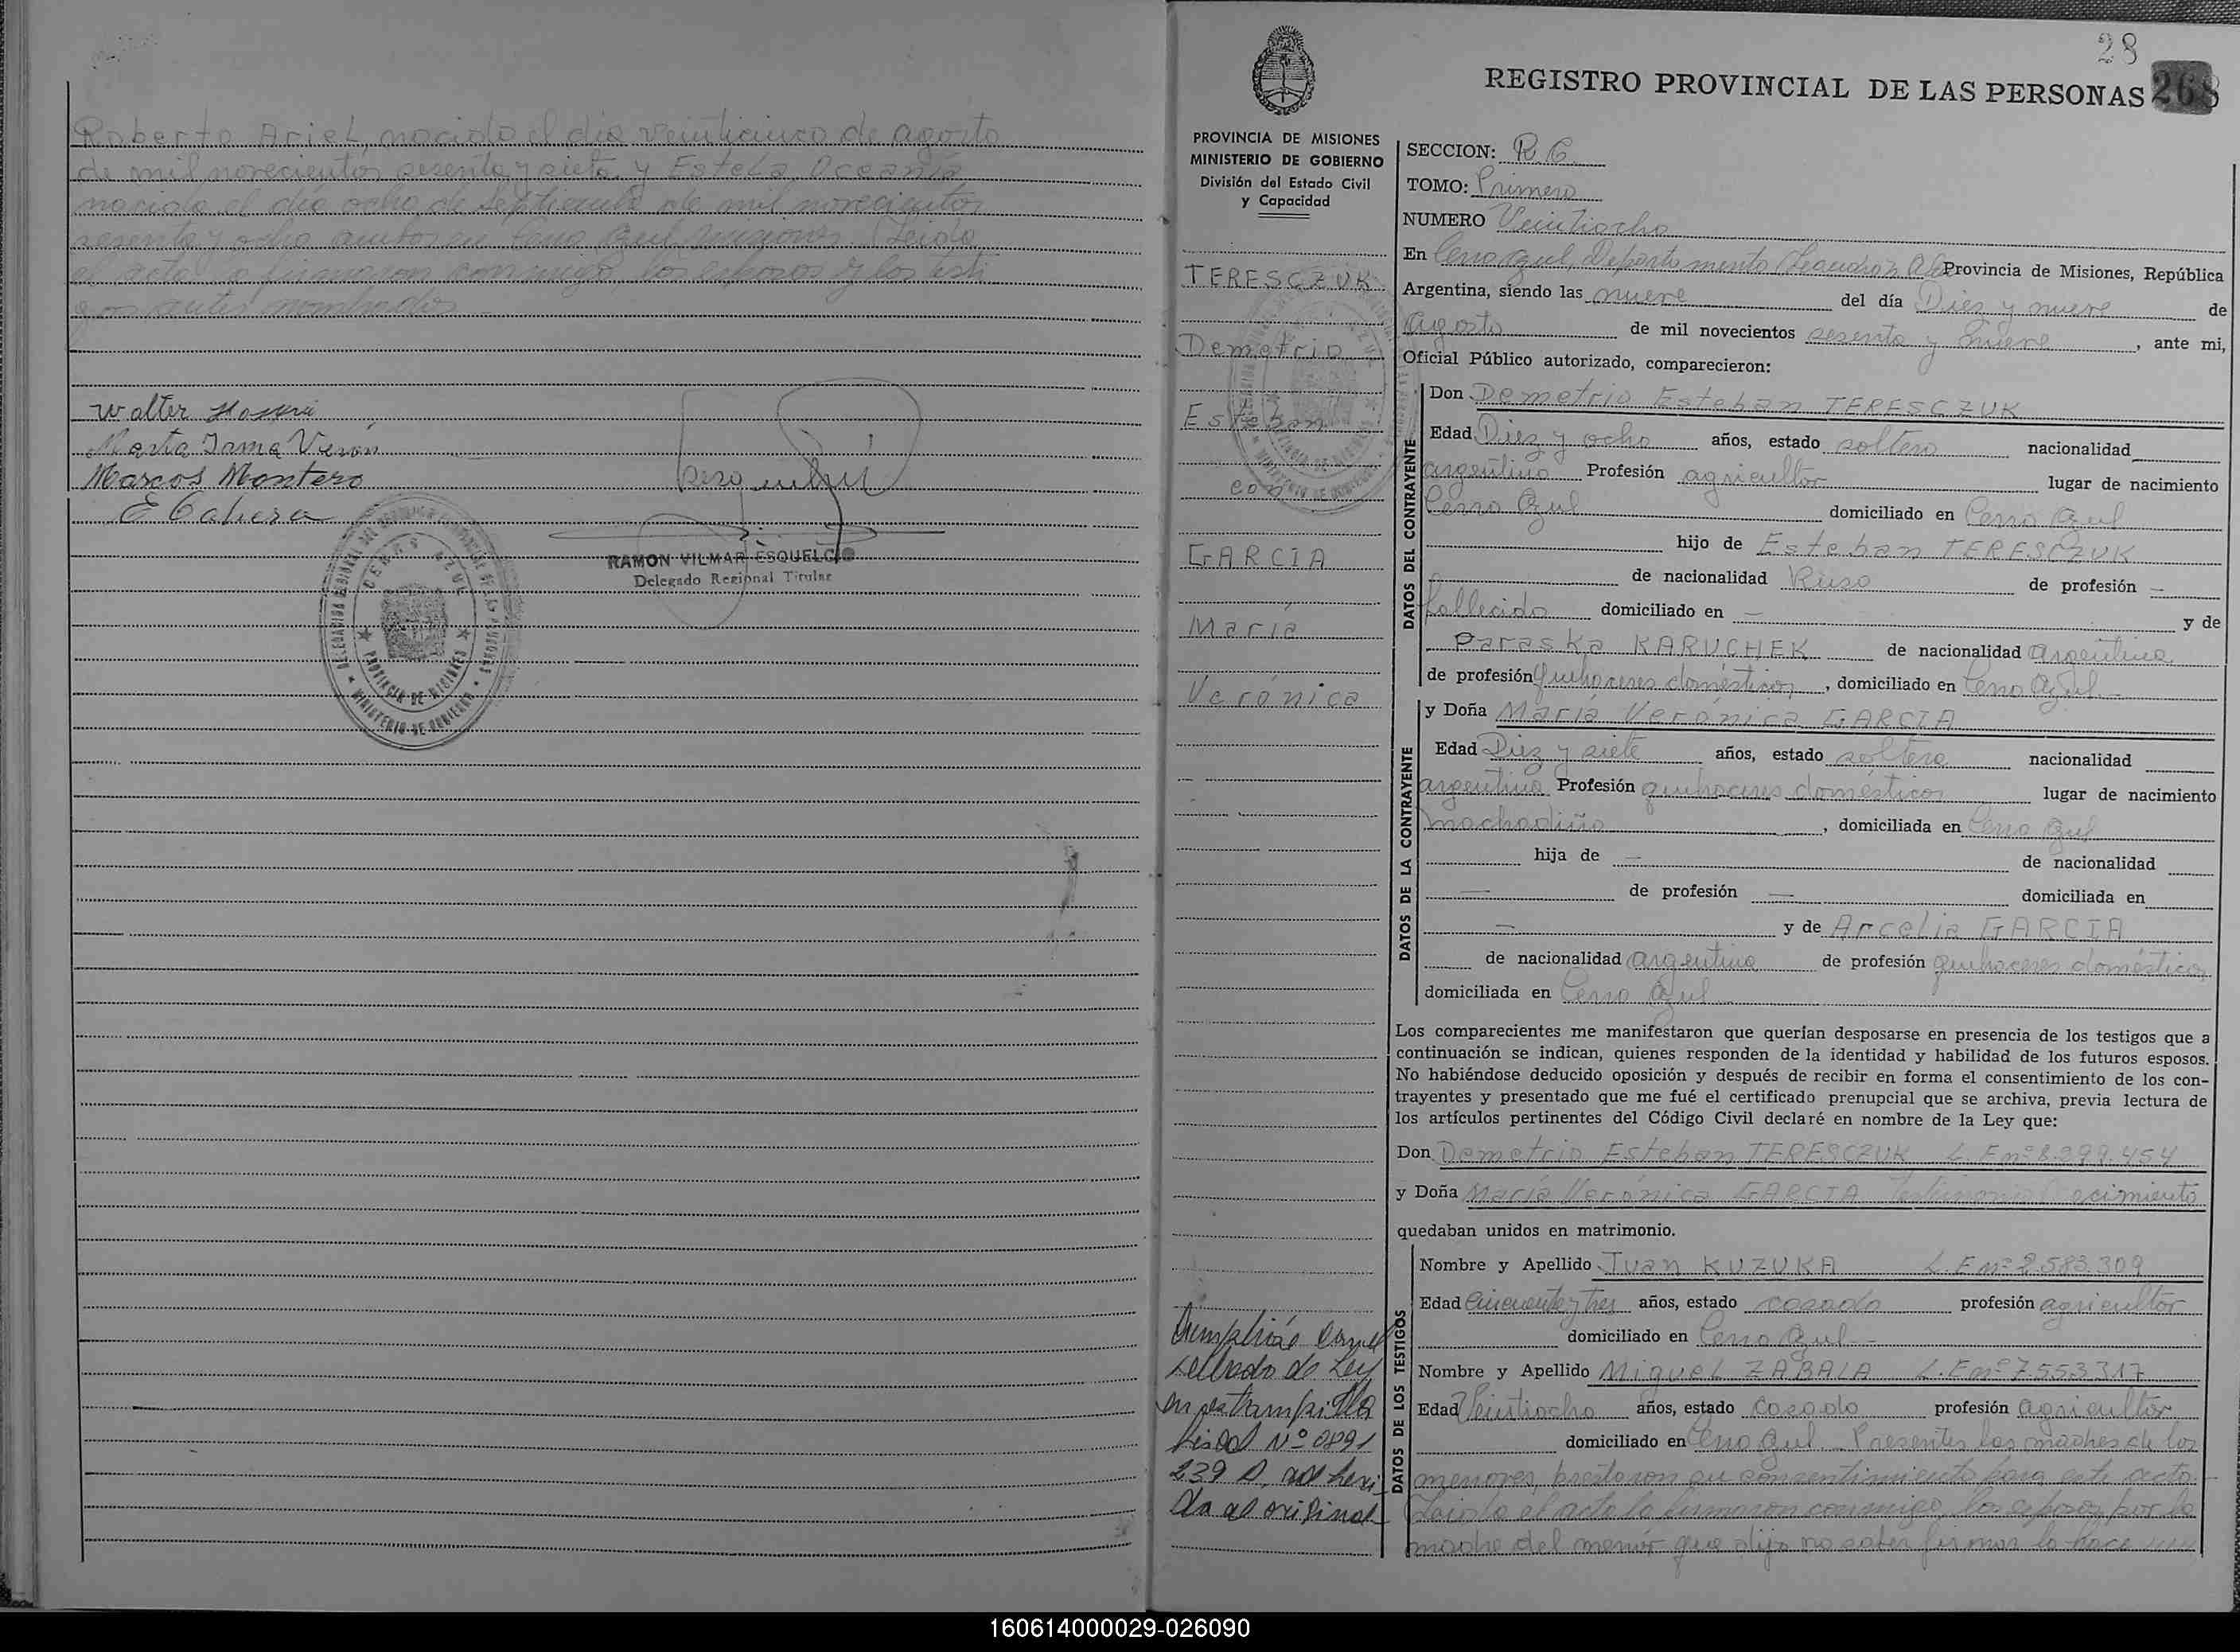 Roberto Ariel, nacido el día veinticinco de agosto
de mil novecientos sesenta y siete y Estela Oceania
nacida el día ocho de septiembre de mil novecientos
sesenta y ocho ambos en Cerro Azul Misiones. Leida
el acta la firmaron conmigo, los esposos y los testi
gos antes nombrados
Walter
Marta Irma Verón
Marcos Montero
E Cabrera
RAMON VILMAR ESQUELC
Delegado Regional Titular
CERRO AZUL
PROVINCIA DE MISIONES
MINISTERIO DE GOBIERNO
28
REGISTRO PROVINCIAL DE LAS PERSONAS 268
PROVINCIA DE MISIONES
MINISTERIO DE GOBIERNO
División del Estado Civil
y Capacidad
TERESCZUK
Demetrio
Esteban
con
GARCIA
María
Verónica
Cumplióse con el
sellado de Ley
en estampilla
fiscal Nº 0891
239 D, adheri
da al original
SECCION: R.C.
TOMO: Primero
NUMERO Veintiocho
En Cerro Azul, Departamento Leandro N. Alem Provincia de Misiones, República
Argentina, siendo las nueve del día Diez y nueve de
Agosto de mil novecientos sesenta y nueve, ante mi,
Oficial Público autorizado, comparecieron:
DATOS DEL CONTRAYENTE
Don Demetrio Esteban TERESCZUK
Edad Diez y ocho años, estado soltero nacionalidad
argentino Profesión agricultor lugar de nacimiento
Cerro Azul domiciliado en Cerro Azul
hijo de Esteban TERESCZUK
de nacionalidad Ruso de profesión —
fallecido domiciliado en — y de
Paraska KARUCHEK de nacionalidad Argentina
de profesión Quehaceres domésticos, domiciliado en Cerro Azul
DATOS DE LA CONTRAYENTE
y Doña María Verónica GARCIA
Edad Diez y siete años, estado soltera nacionalidad
argentina Profesión quehaceres domésticos lugar de nacimiento
Machadiño, domiciliada en Cerro Azul
hija de — de nacionalidad
— de profesión — domiciliada en
— y de Arcelia GARCIA
de nacionalidad Argentina de profesión quehaceres domésticos
domiciliada en Cerro Azul
Los comparecientes me manifestaron que querían desposarse en presencia de los testigos que a
continuación se indican, quienes responden de la identidad y habilidad de los futuros esposos.
No habiéndose deducido oposición y después de recibir en forma el consentimiento de los con-
trayentes y presentado que me fué el certificado prenupcial que se archiva, previa lectura de
los artículos pertinentes del Código Civil declaré en nombre de la Ley que:
Don Demetrio Esteban TERESCZUK L.E nº 8.299.454
y Doña María Verónica GARCIA Testimonio acimiento
quedaban unidos en matrimonio.
DATOS DE LOS TESTIGOS
Nombre y Apellido Juan KUZUKA L.E nº 2.583.309
Edad Cincuenta y tres años, estado casado profesión agricultor
domiciliado en Cerro Azul
Nombre y Apellido Miguel ZABALA L.E nº 7.553.317
Edad Veintiocho años, estado casado profesión agricultor
domiciliado en Cerro Azul. Presentes las madres de los
menores, prestaron su consentimiento para este acto.
Leida el acta la firmaron conmigo, los esposos, por la
madre del menor que dijo no saber firmar lo hace
160614000029-026090